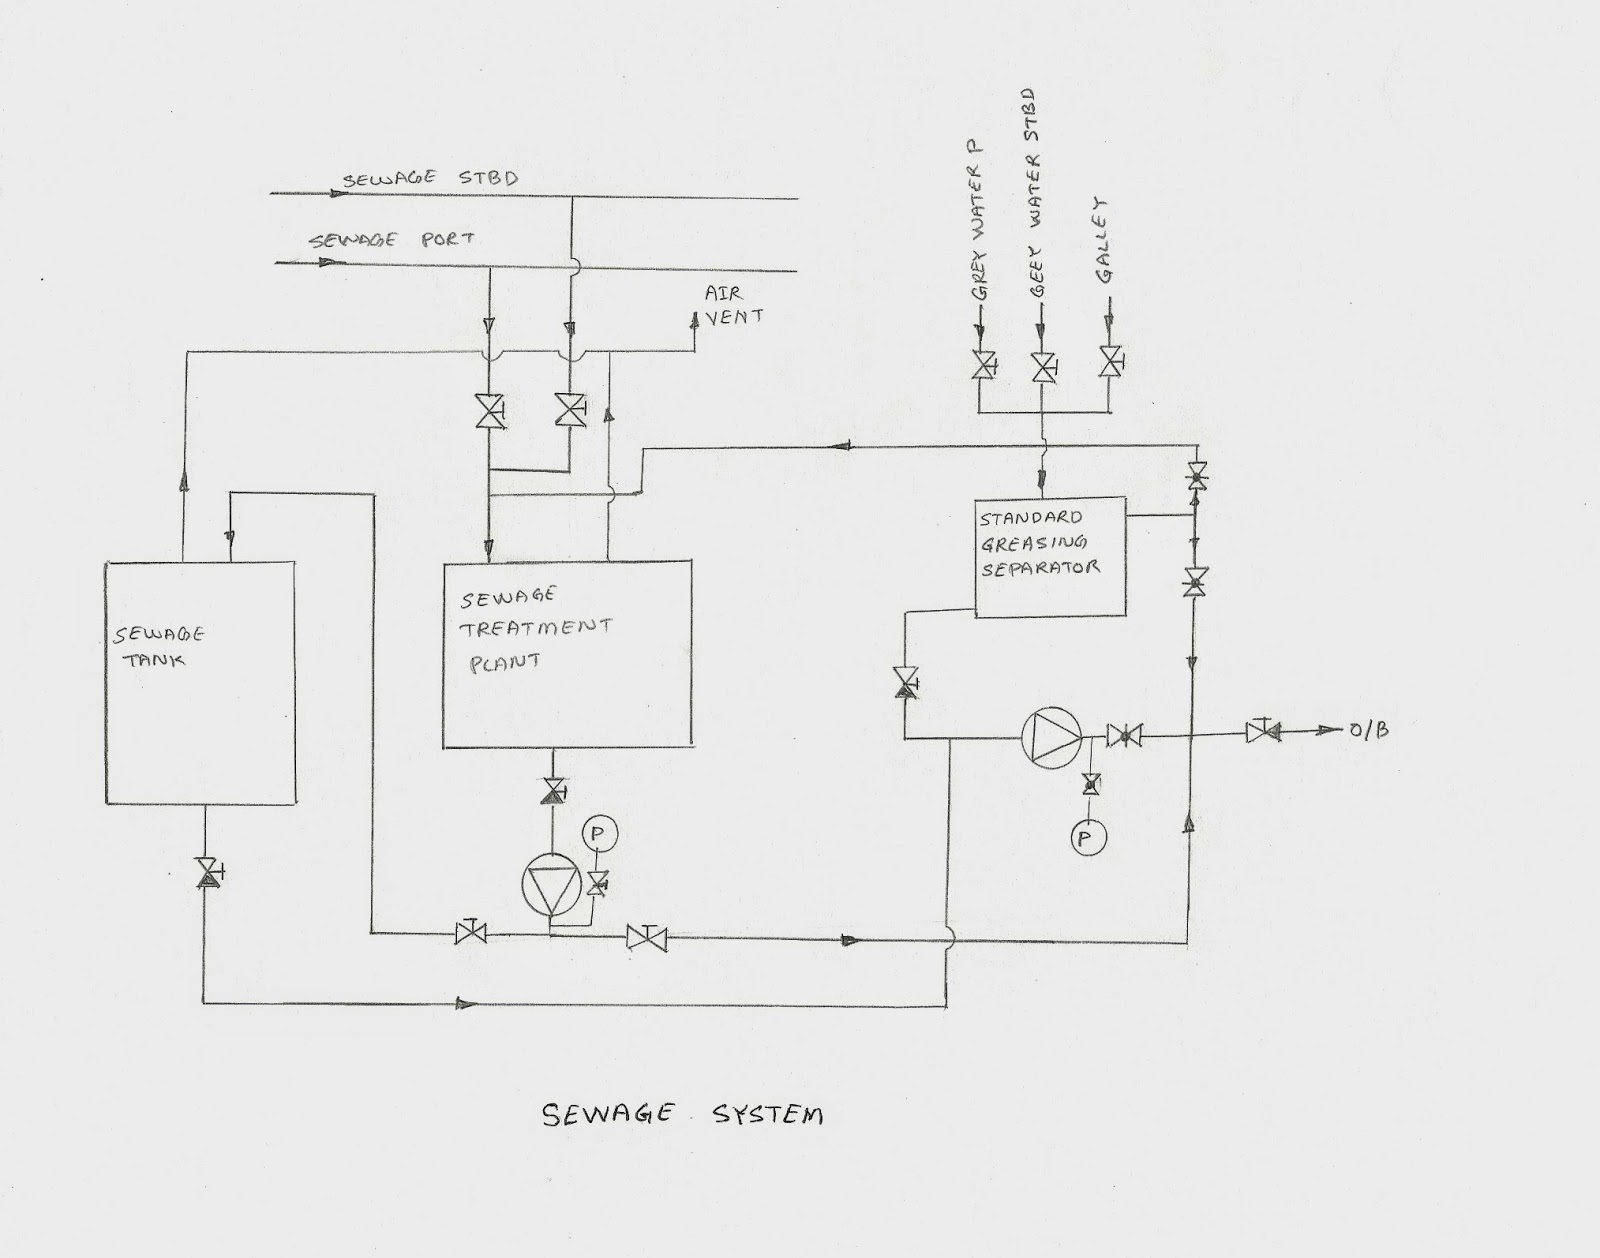 SEWAGE STBD
SEWAGE PORT
AIR
VENT
GREY WATER P
GEEY WATER STBD
GALLEY
STANDARD
GREASING
SEPARATOR
SEWAGE
TANK
SEWAGE
TREATMENT
PLANT
P
P
O/B
SEWAGE SYSTEM